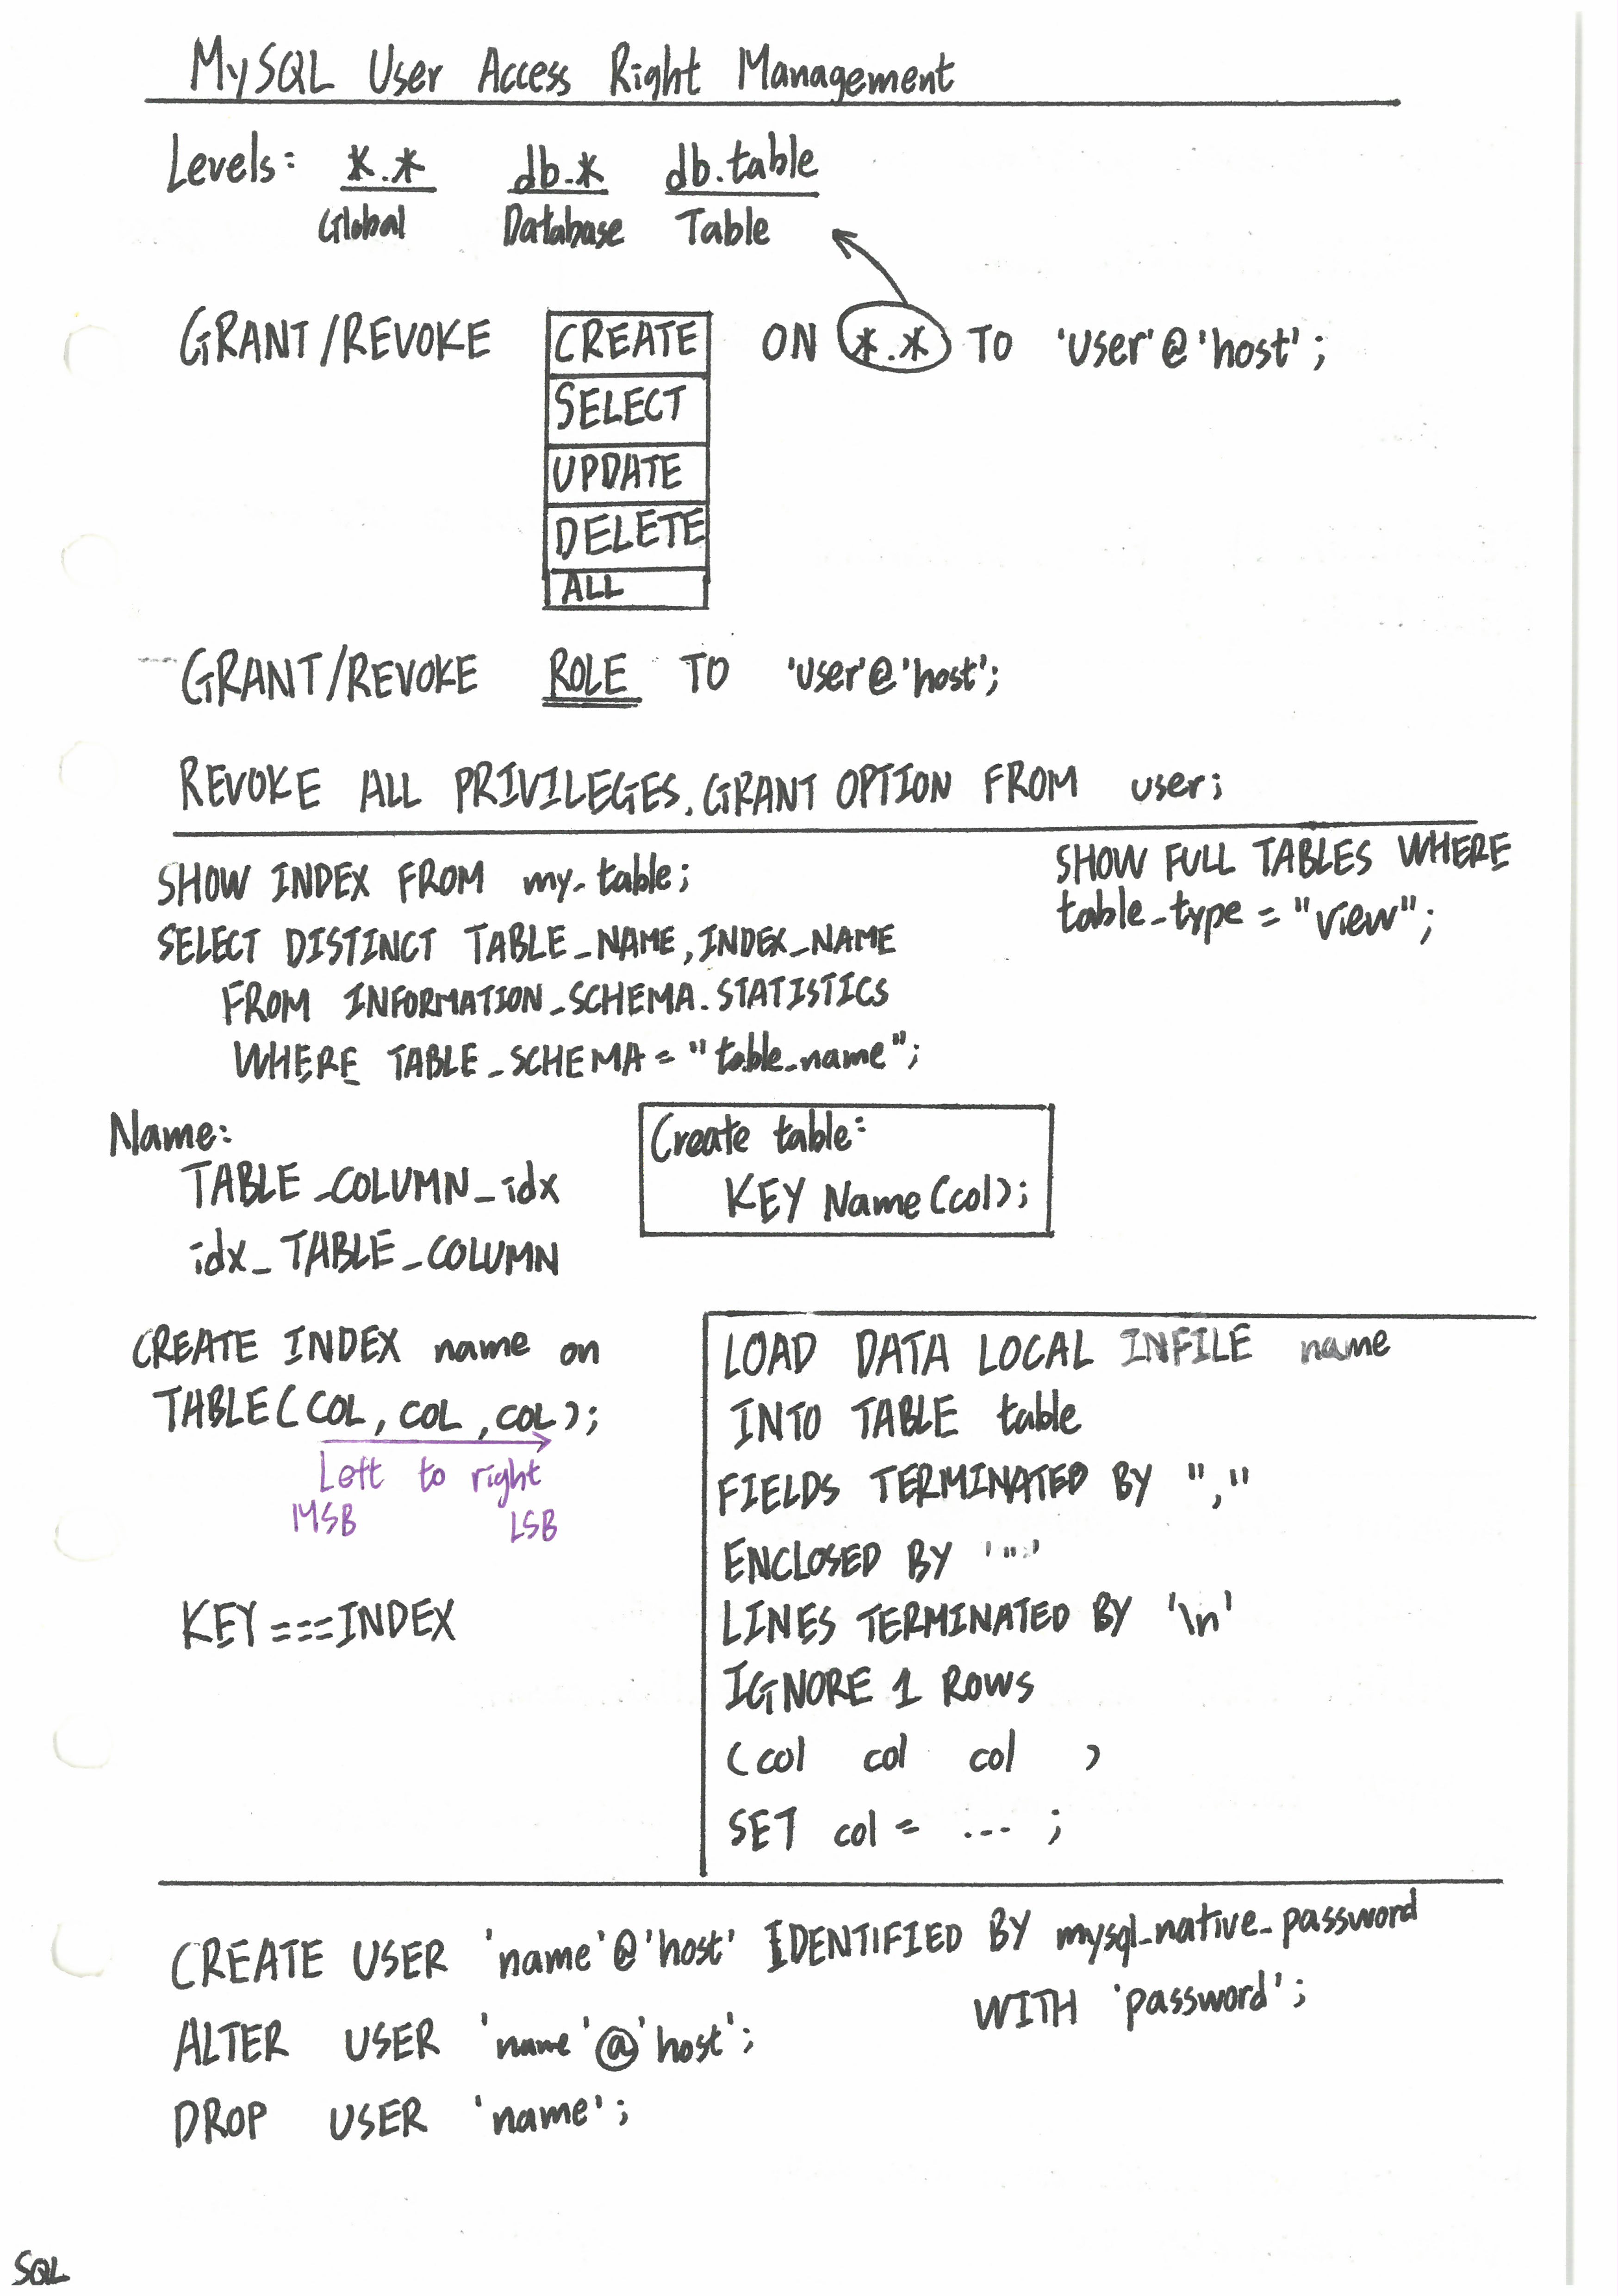 MySQL User Access Right Management
Levels: *.* db.* db.table
Global Database Table
GRANT/REVOKE CREATE ON *.* TO 'user'@'host';
SELECT
UPDATE
DELETE
ALL
GRANT/REVOKE ROLE TO 'user'@'host';
REVOKE ALL PRIVILEGES, GRANT OPTION FROM user;
SHOW INDEX FROM my_table;
SELECT DISTINCT TABLE_NAME, INDEX_NAME
FROM INFORMATION_SCHEMA.STATISTICS
WHERE TABLE_SCHEMA = "table_name";
SHOW FULL TABLES WHERE
table_type = "view";
Name:
TABLE_COLUMN_idx
idx_TABLE_COLUMN
Create table:
KEY Name(col);
CREATE INDEX name on
TABLE(COL, COL, COL);
Left to right
MSB LSB
KEY === INDEX
LOAD DATA LOCAL INFILE name
INTO TABLE table
FIELDS TERMINATED BY ","
ENCLOSED BY '"'
LINES TERMINATED BY '\n'
IGNORE 1 ROWS
(col col col )
SET col = ... ;
CREATE USER 'name'@'host' IDENTIFIED BY mysql_native_password
WITH 'password';
ALTER USER 'name'@'host';
DROP USER 'name';
SQL